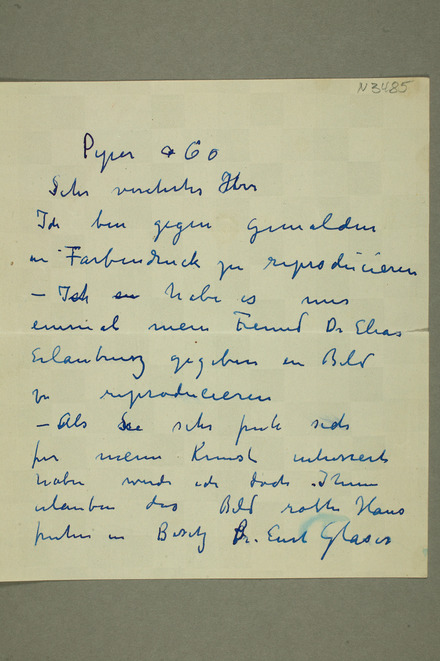 N 3485
Pyper & Co
Sehr verehrter Herr
Ich ben gegen gemalden
in Farbendruck zu reproducieren
– Ich habe es nur
einmal mein Freund Dr Elias
Erlaubnis gegeben en Bild
zu reproducieren
– Als Sie sehr sich
for meine Kunst interesert
haben werde ich doch Ihnen
erlauben das Bild rothe Haus
in Besitz Dr. Curt Glaser